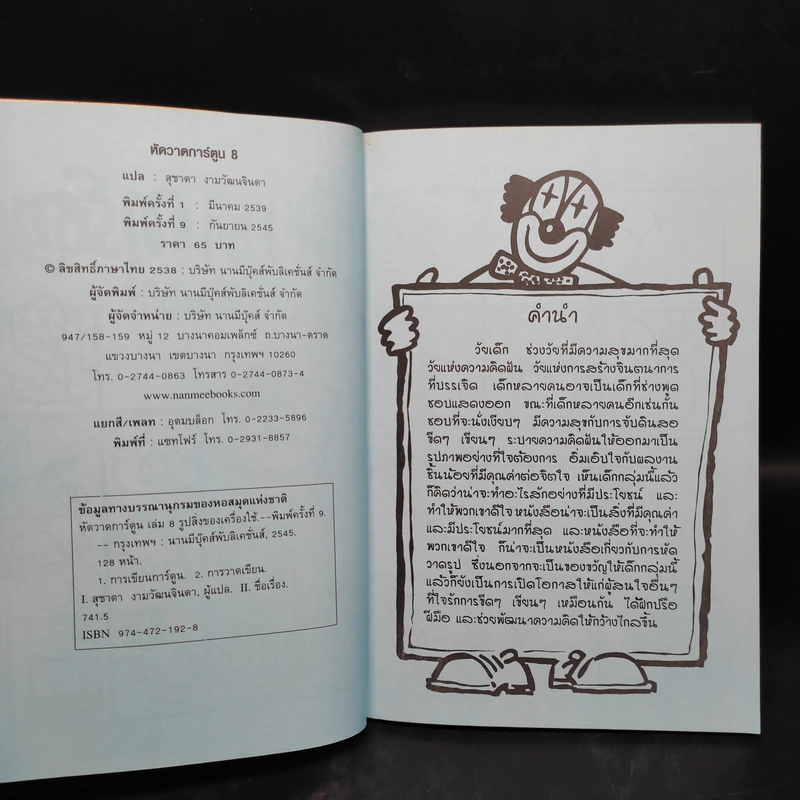 หัดวาดการ์ตูน 8
แปล : สุชาดา งามวัฒนจินดา
พิมพ์ครั้งที่ 1 : มีนาคม 2539
พิมพ์ครั้งที่ 9 : กันยายน 2545
ราคา 65 บาท
© ลิขสิทธิ์ภาษาไทย 2538 : บริษัท นานมีบุ๊คส์พับลิเคชั่นส์ จำกัด
ผู้จัดพิมพ์ : บริษัท นานมีบุ๊คส์พับลิเคชั่นส์ จำกัด
ผู้จัดจำหน่าย : บริษัท นานมีบุ๊คส์ จำกัด
947/158-159 หมู่ 12 บางนาคอมเพล็กซ์ ถ.บางนา-ตราด
แขวงบางนา เขตบางนา กรุงเทพฯ 10260
โทร. 0-2744-0863 โทรสาร 0-2744-0873-4
www.nanmeebooks.com
แยกสี/เพลท : อุดมบล็อก โทร. 0-2233-5896
พิมพ์ที่ : แซทโฟร์ โทร. 0-2931-8857
ข้อมูลทางบรรณานุกรมของหอสมุดแห่งชาติ
หัดวาดการ์ตูน เล่ม 8 รูปสิ่งของเครื่องใช้.--พิมพ์ครั้งที่ 9.
-- กรุงเทพฯ : นานมีบุ๊คส์พับลิเคชั่นส์, 2545.
128 หน้า.
1. การเขียนการ์ตูน. 2. การวาดเขียน.
I. สุชาดา งามวัฒนจินดา, ผู้แปล. II. ชื่อเรื่อง.
741.5
ISBN 974-472-192-8
คำนำ
วัยเด็ก ช่วงวัยที่มีความสุขมากที่สุด
วัยแห่งความคิดฝัน วัยแห่งการสร้างจินตนาการ
ที่บรรเจิด เด็กหลายคนอาจเป็นเด็กที่ช่างพูด
ชอบแสดงออก ขณะที่เด็กหลายคนอีกเช่นกัน
ชอบที่จะนั่งเงียบๆ มีความสุขกับการจับดินสอ
ขีดๆ เขียนๆ ระบายความคิดฝันให้ออกมาเป็น
รูปภาพอย่างที่ใจต้องการ อิ่มเอิบใจกับผลงาน
ชิ้นน้อยที่มีคุณค่าต่อจิตใจ เห็นเด็กกลุ่มนี้แล้ว
ก็คิดว่าน่าจะทำอะไรสักอย่างที่มีประโยชน์ และ
ทำให้พวกเขาดีใจ หนังสือน่าจะเป็นสิ่งที่มีคุณค่า
และมีประโยชน์มากที่สุด และหนังสือที่จะทำให้
พวกเขาดีใจ ก็น่าจะเป็นหนังสือเกี่ยวกับการหัด
วาดรูป ซึ่งนอกจากจะเป็นของขวัญให้เด็กกลุ่มนี้
แล้วก็ยังเป็นการเปิดโอกาสให้แก่ผู้สนใจอื่นๆ
ที่ใจรักการขีดๆ เขียนๆ เหมือนกัน ได้ฝึกปรือ
ฝีมือ และช่วยพัฒนาความคิดให้กว้างไกลขึ้น